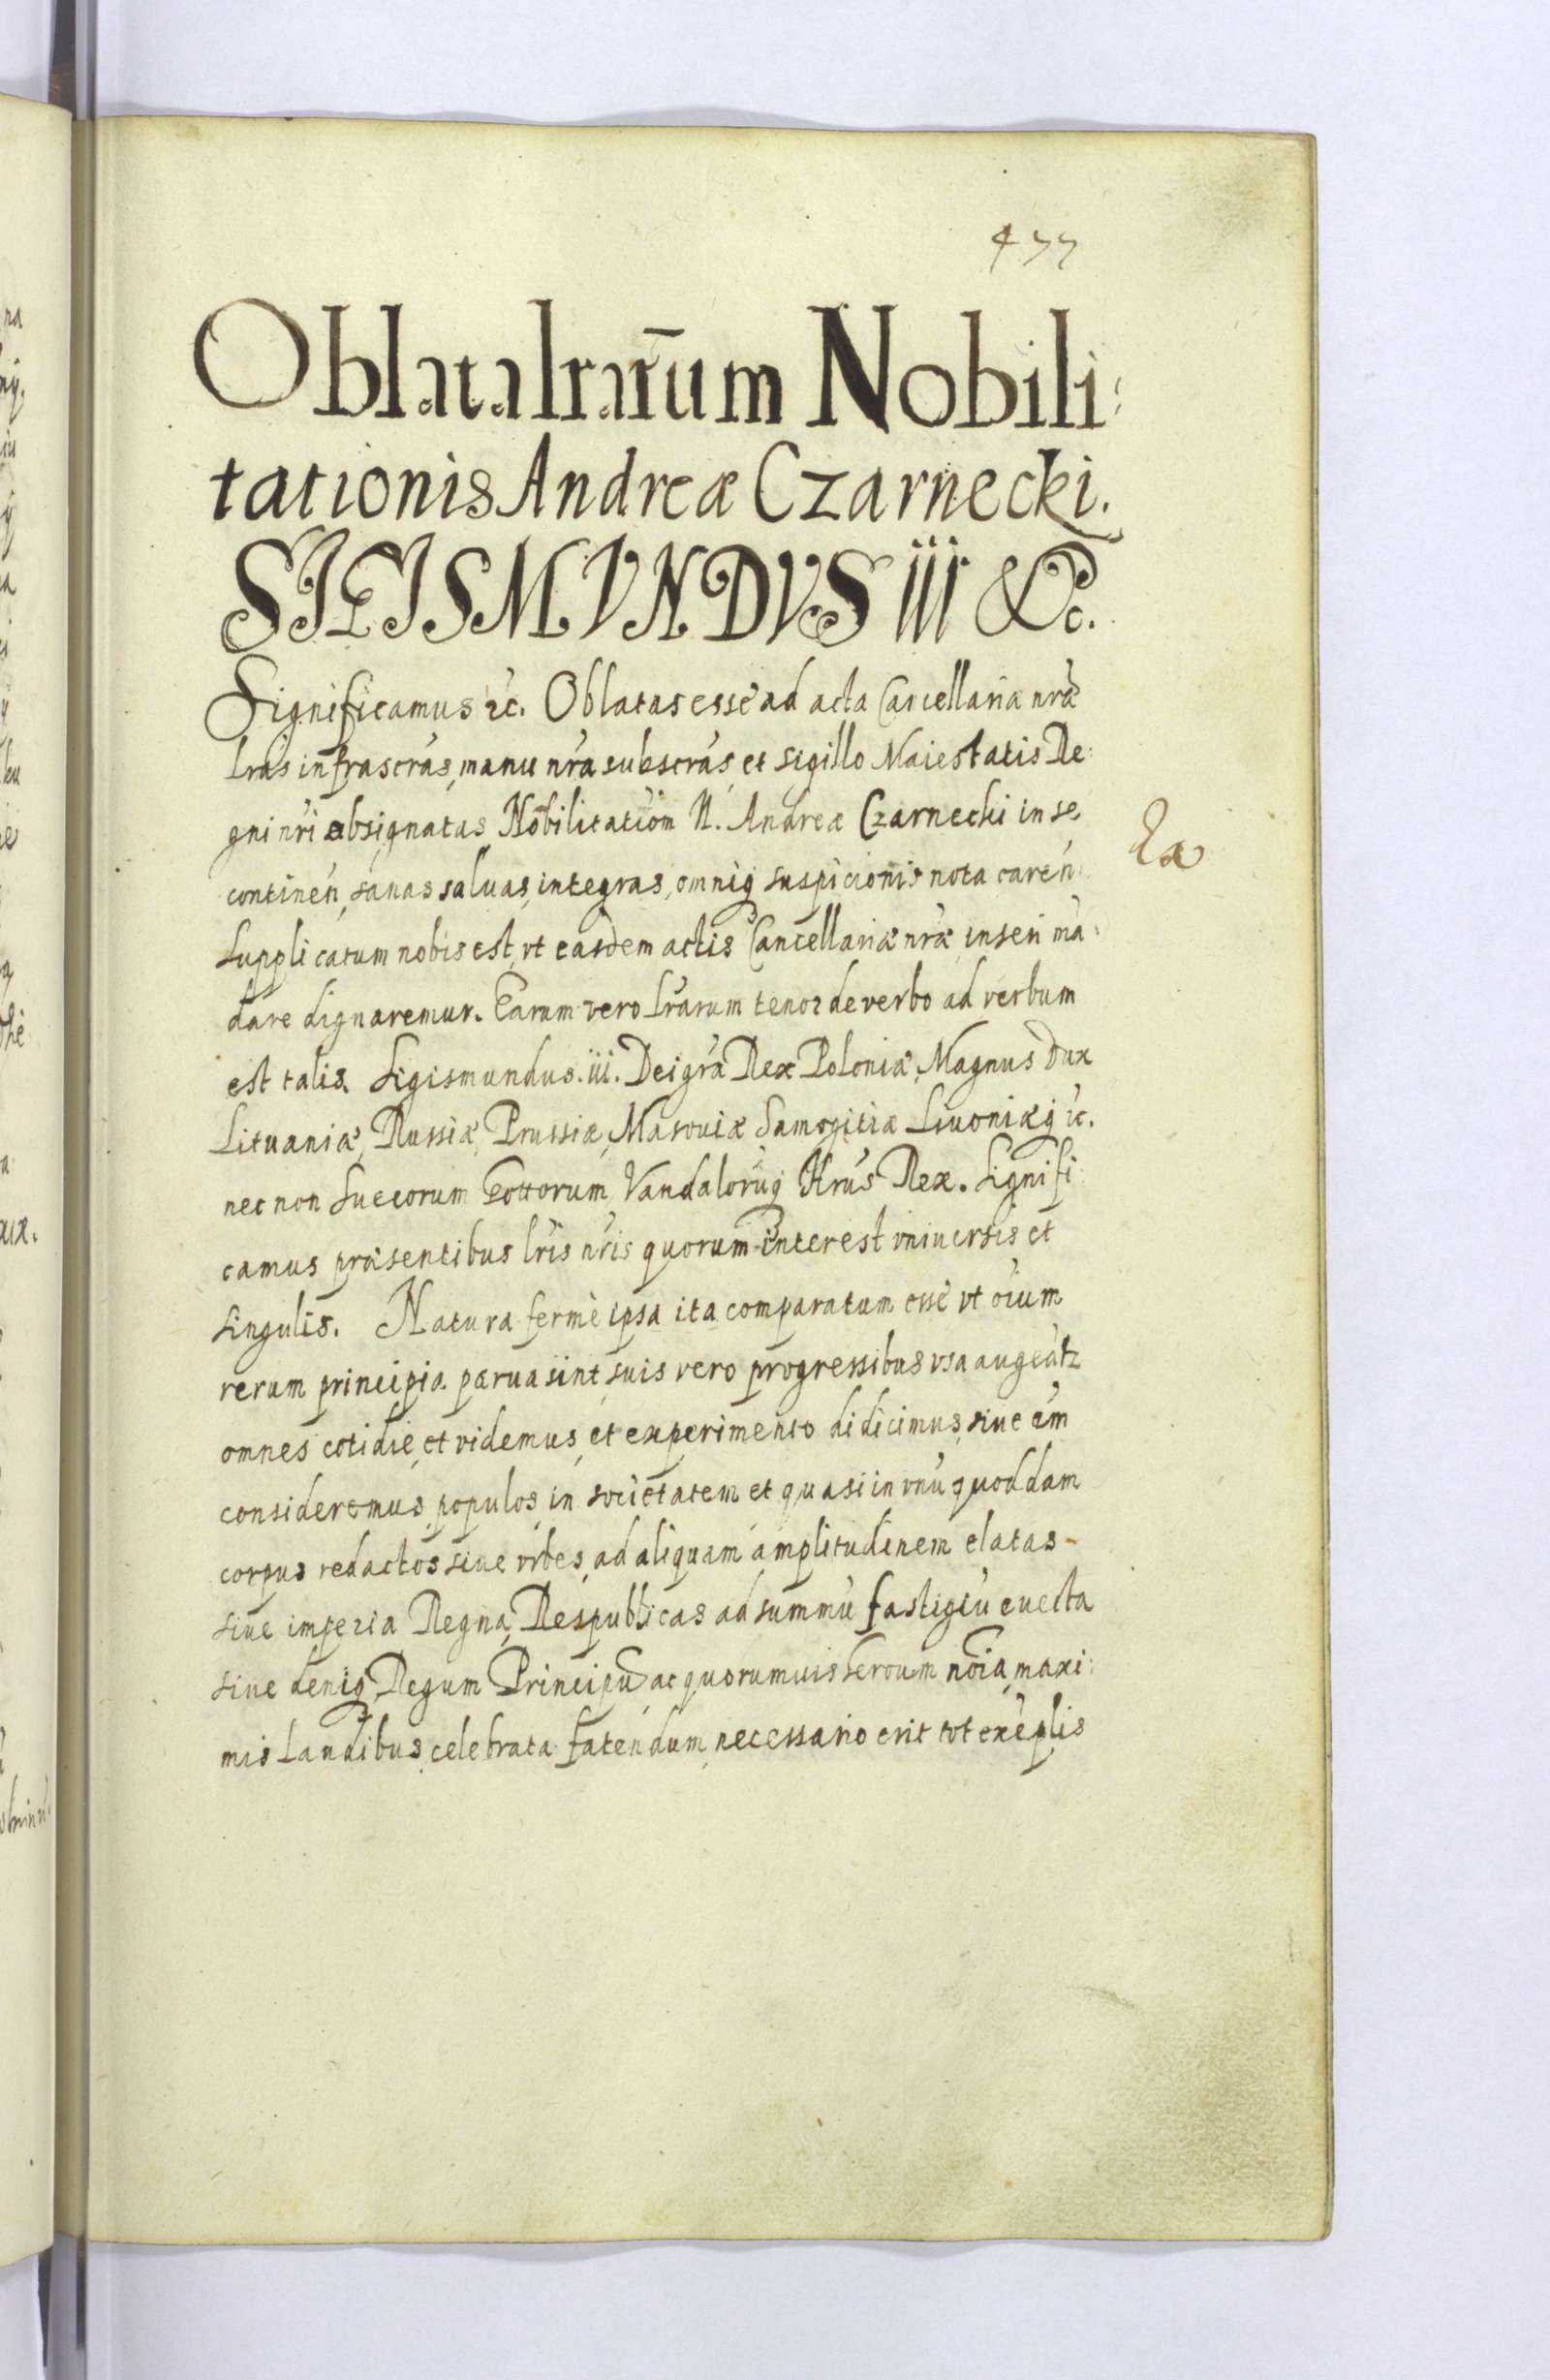 477
Oblata lrarūm Nobili:
tationis Andreæ Czarnecki.
SIGISMVNDVS iii &c.
Significamus etc. Oblatas esse ad acta Cancellariæ nræ
lras infrascras, manu nra subscras, et sigillo Maiestatis Re:
gni nri obsignatas, Nobilitatiōm N. Andreæ Czarnecki in se
continen, sanas saluas, integras, omniq suspicionis nota caren:
Supplicatum nobis est, vt easdem actis Cancellariæ nræ inseri mā:
dare dignaremur. Earum vero lrarum tenor de verbo ad verbum
est talis. Sigismundus. iii. Dei gra Rex Poloniæ, Magnus Dux
Lituaniæ, Russiæ, Prussiæ, Masouiæ Samogitiæ Liuoniæq etc.
nec non Suecorum Gottorum, Vandalorūq Hrus Rex. Signifi:
camus præsentibus lris nris quorum interest vniuersis et
singulis. Natura fermè ipsa ita comparatum esse vt oium
rerum principia parua sint, suis vero progressibus vsa augeātr
omnes cotidie, et videmus, et experimento didicimus, siue em
consideremus, populos, in societatem et quasi in vnū quoddam
corpus redactos siue vrbes, ad aliquam amplitudinem elatas -
siue imperia Regna, Respublicas ad summū fastigiū euecta
siue deniq Regum Principū ac quorumuis heroum noia, maxi:
mis laudibus, celebrata fatendum, necessario erit tot exēplis